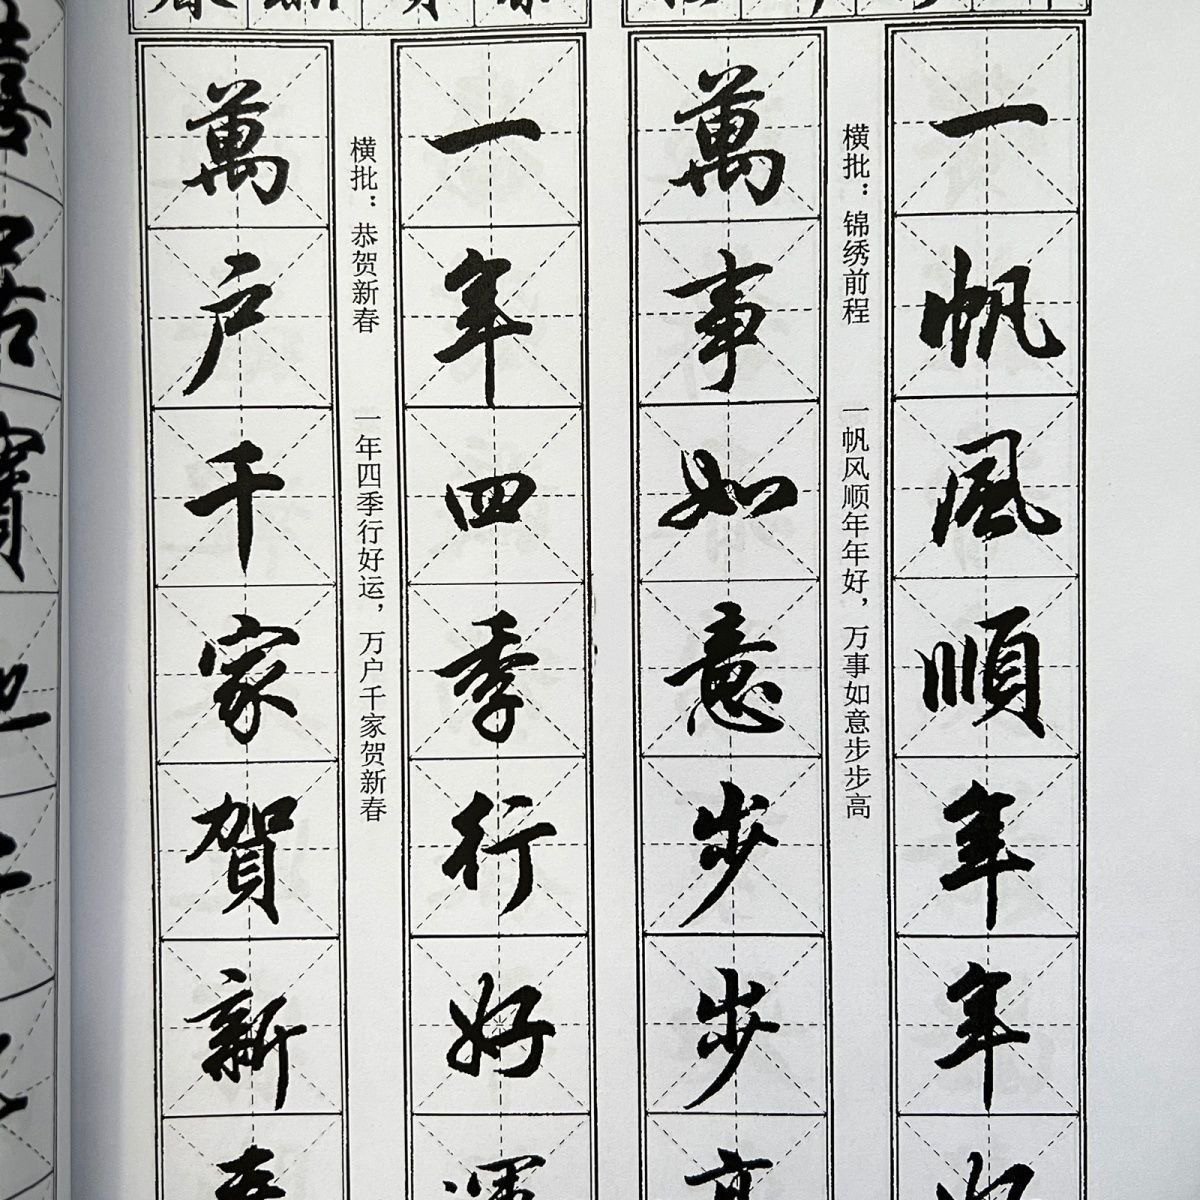 一帆風順年年好
横批：锦绣前程
一帆风顺年年好，万事如意步步高
萬事如意步步高
一年四季行好運
横批：恭贺新春
一年四季行好运，万户千家贺新春
萬户千家賀新春